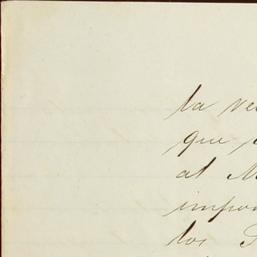 la ve
que
al
impor
los S